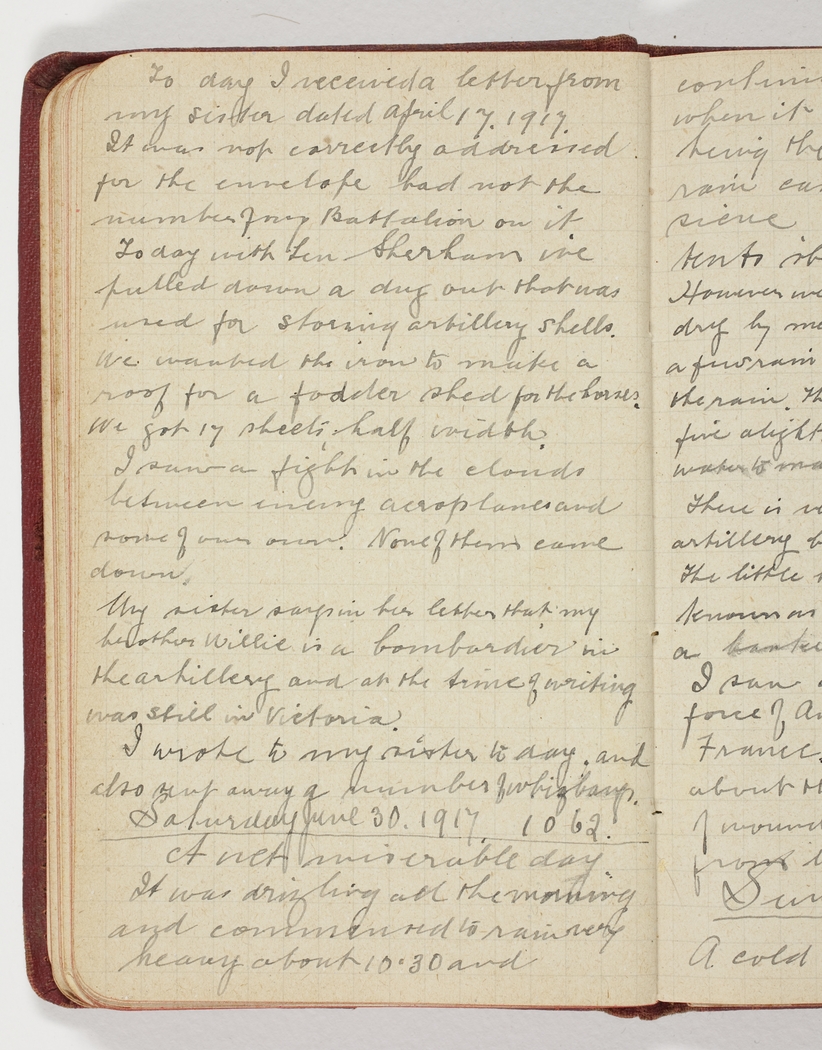 To day I received a letter from
my sister dated April 17. 1917.
It was not correctly addressed.
for the envelope had not the
number of my Battalion on it
To day with Len Sherham we
pulled down a dug out that was
used for storing artillery shells.
We wanted the iron to make a
roof for a fodder shed for the horses.
We got 17 sheets, half width.
I saw a fight in the clouds
between enemy aeroplanes and
some of our own. None of them came
down.
My sister says in her letter that my
brother Willie is a bombardier in
the artillery and at the time of writing
was still in Victoria.
I wrote to my sister to day. and
also sent away a number of whizbangs.
Saturday June 30. 1917. 1062.
A wet miserable day
It was drizzling all the morning
and commenced to rain very
heavy about 10.30 and
when it
being the
rain
sieve
tents
However we
dry by
a few rain
the rain.
five
water to
There is
artillery
The little
known as
a
I saw
force of
France.
about
of
from
A cold